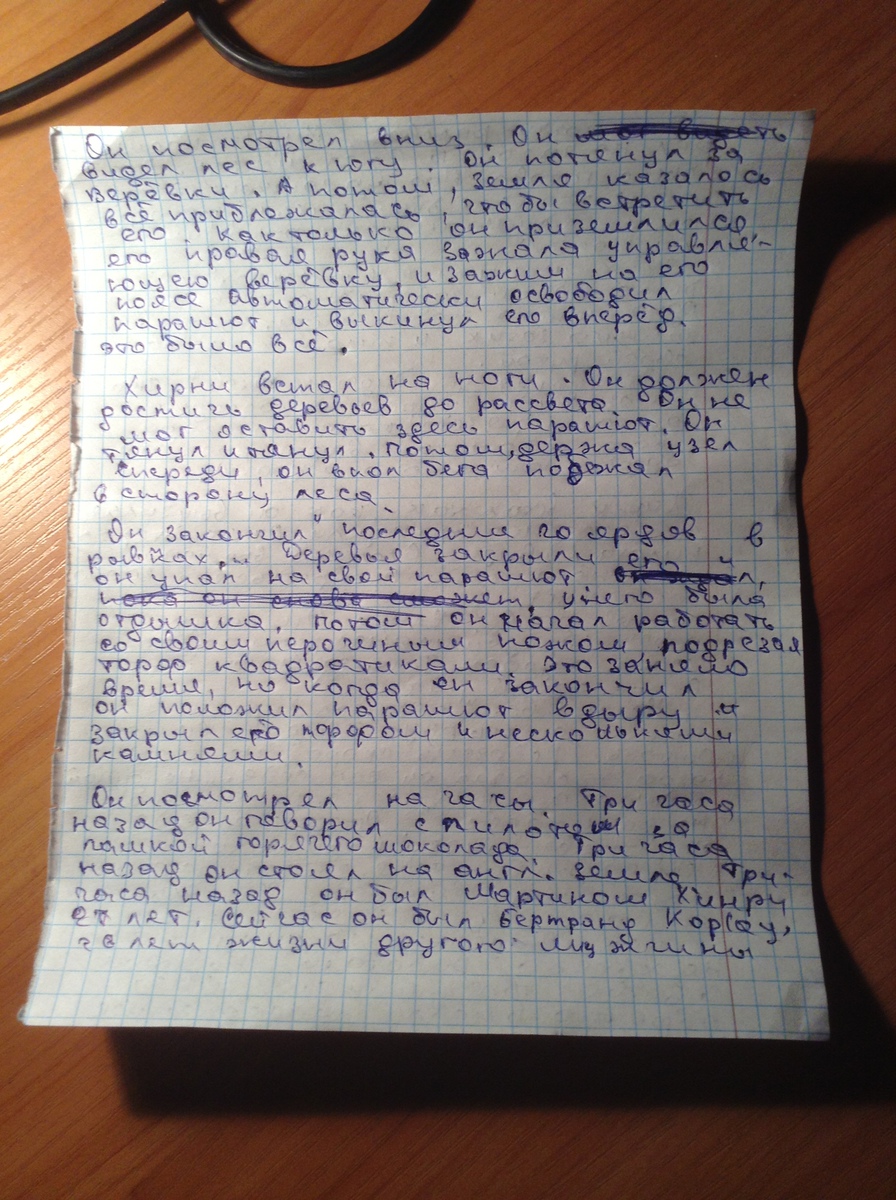 Он посмотрел вниз. Он
видел лес к югу. он потянул за
верёвки. А потом, земля казалось
всё приближалась, чтобы встретить
его. как только он приземлился
его правая рука зажала управля-
ющею верёвку, и зажим на его
поясе автоматически освободил
парашют и выкинул его вперёд.
это было всё.
Хирни встал на ноги. Он должен
достичь деревьев до рассвета. Он не
мог оставить здесь парашют. Он
тянул и тянул. потом, держа узел
спереди, он впол бега побежал
в сторону леса.
Он закончил последние ярдов в
Деревья закрыли его и
он упал на свой парашют
у него была
отдышка. потом он начал работать
со своим перочиным ножом, подрезая
торф квадратиками. Это заняло
время, но когда он закончил
он положил парашют в дыру и
закрыл его торфом и несколькими
камнями.
Он посмотрел на часы. Три часа
назад он говорил с пилотом за
чашкой горячего шоколада. Три часа
назад он стоял на англ. земле. Три
часа назад он был Мартином Хинри
лет. Сейчас он был Бертранд Корсау,
лет жизни другого мужчины